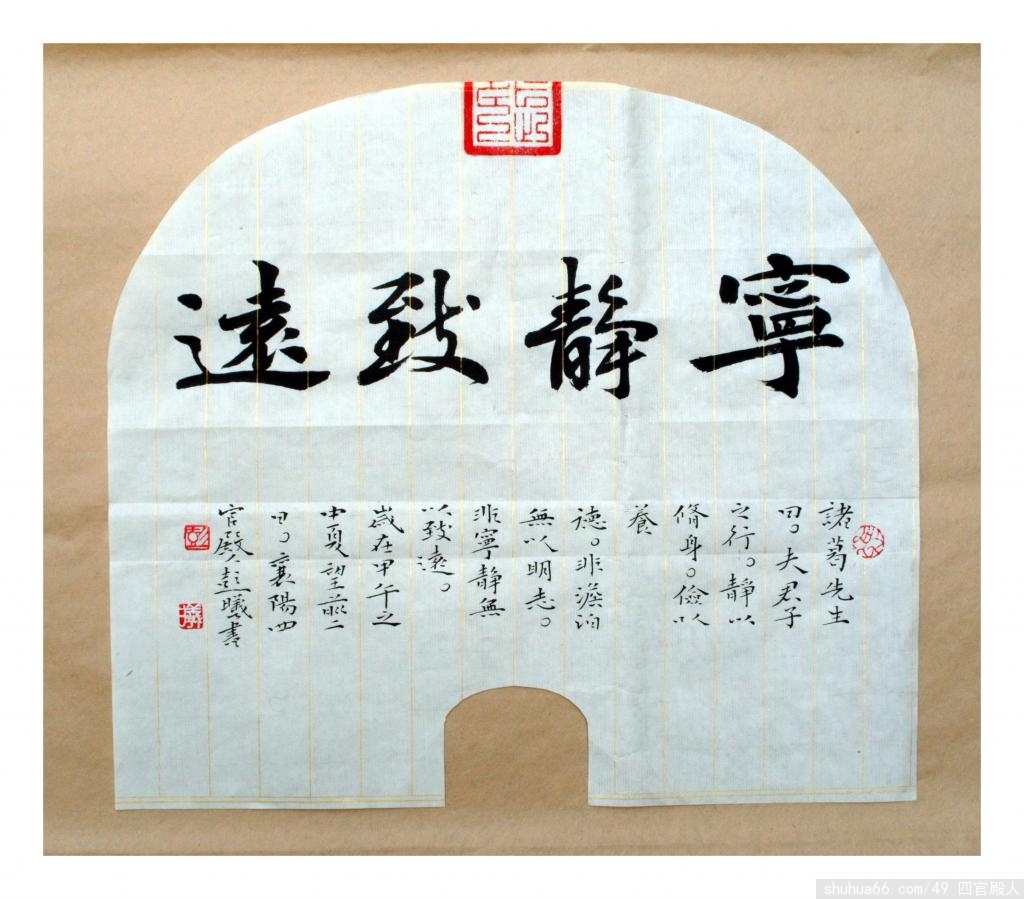 寧静致遠
諸葛先生
曰。夫君子
之行。静以
脩身。儉以
養
德。非澹泊
無以明志。
非寧静無
以致遠。
歲在甲午之
中夏望前二
日。襄陽四
官殿人彭曦書
shuhua66.com/49 四官殿人